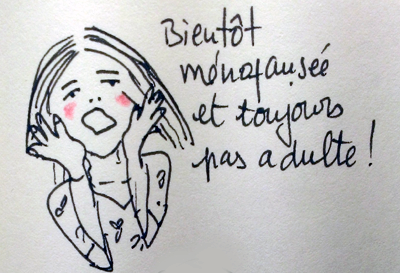 Bientôt
ménopausée
et toujours
pas adulte !